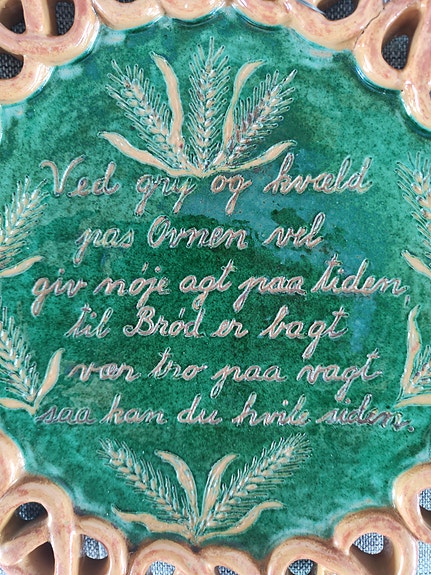 Ved gry og kvæld
pas Ovnen vel
giv nøje agt paa tiden,
til Brød er bagt
vær tro paa vagt
saa kan du hvile siden.